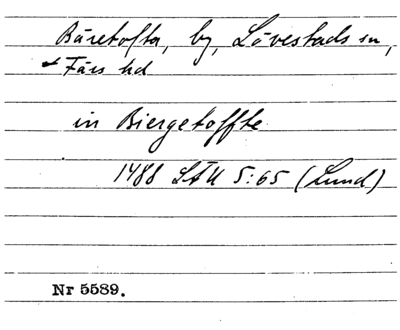 Bäretofta, by, Lövestads sn,
Färs hd
in Biergetoffte
1488 LÄU 5:65 (Lund)
Nr 5589.